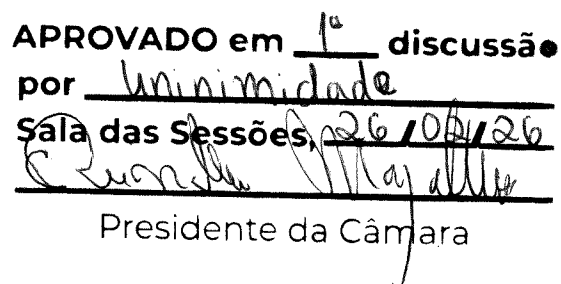 APROVADO em 1ª discussão
por Uninimidade
Sala das Sessões, 26 / 02 / 26
Presidente da Câmara